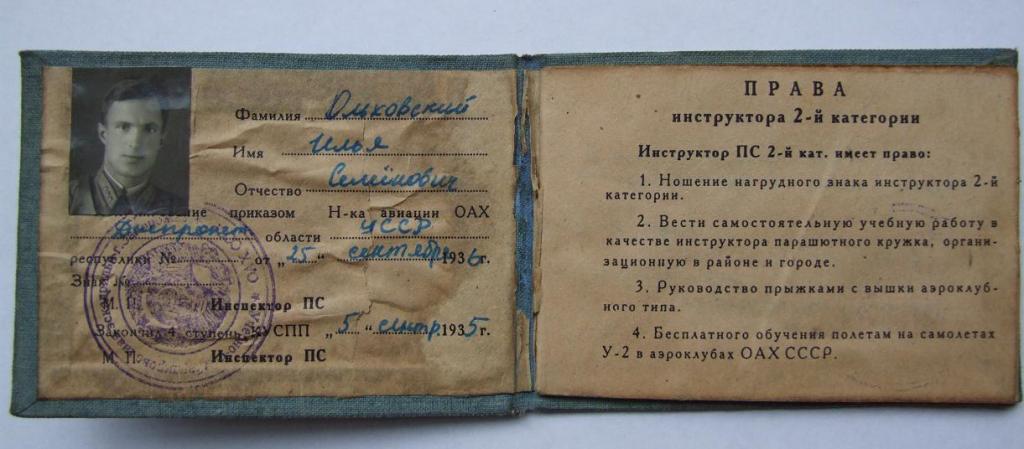 Фамилия Ольховский
Имя Илья
Отчество Семёнович
приказом Н-ка авиации ОАХ
Днепропет области УССР
республики № от „25" сентября 1936 г.
Знак №
М. П. Инспектор ПС
Закончил 4 ступень КУСПП „5" сентр. 1935 г.
М. П. Инспектор ПС
ПРАВА
инструктора 2-й категории
Инструктор ПС 2-й кат. имеет право:
1. Ношение нагрудного знака инструктора 2-й
категории.
2. Вести самостоятельную учебную работу в
качестве инструктора парашютного кружка, органи-
зационную в районе и городе.
3. Руководство прыжками с вышки аэроклуб-
ного типа.
4. Бесплатного обучения полетам на самолетах
У-2 в аэроклубах ОАХ СССР.